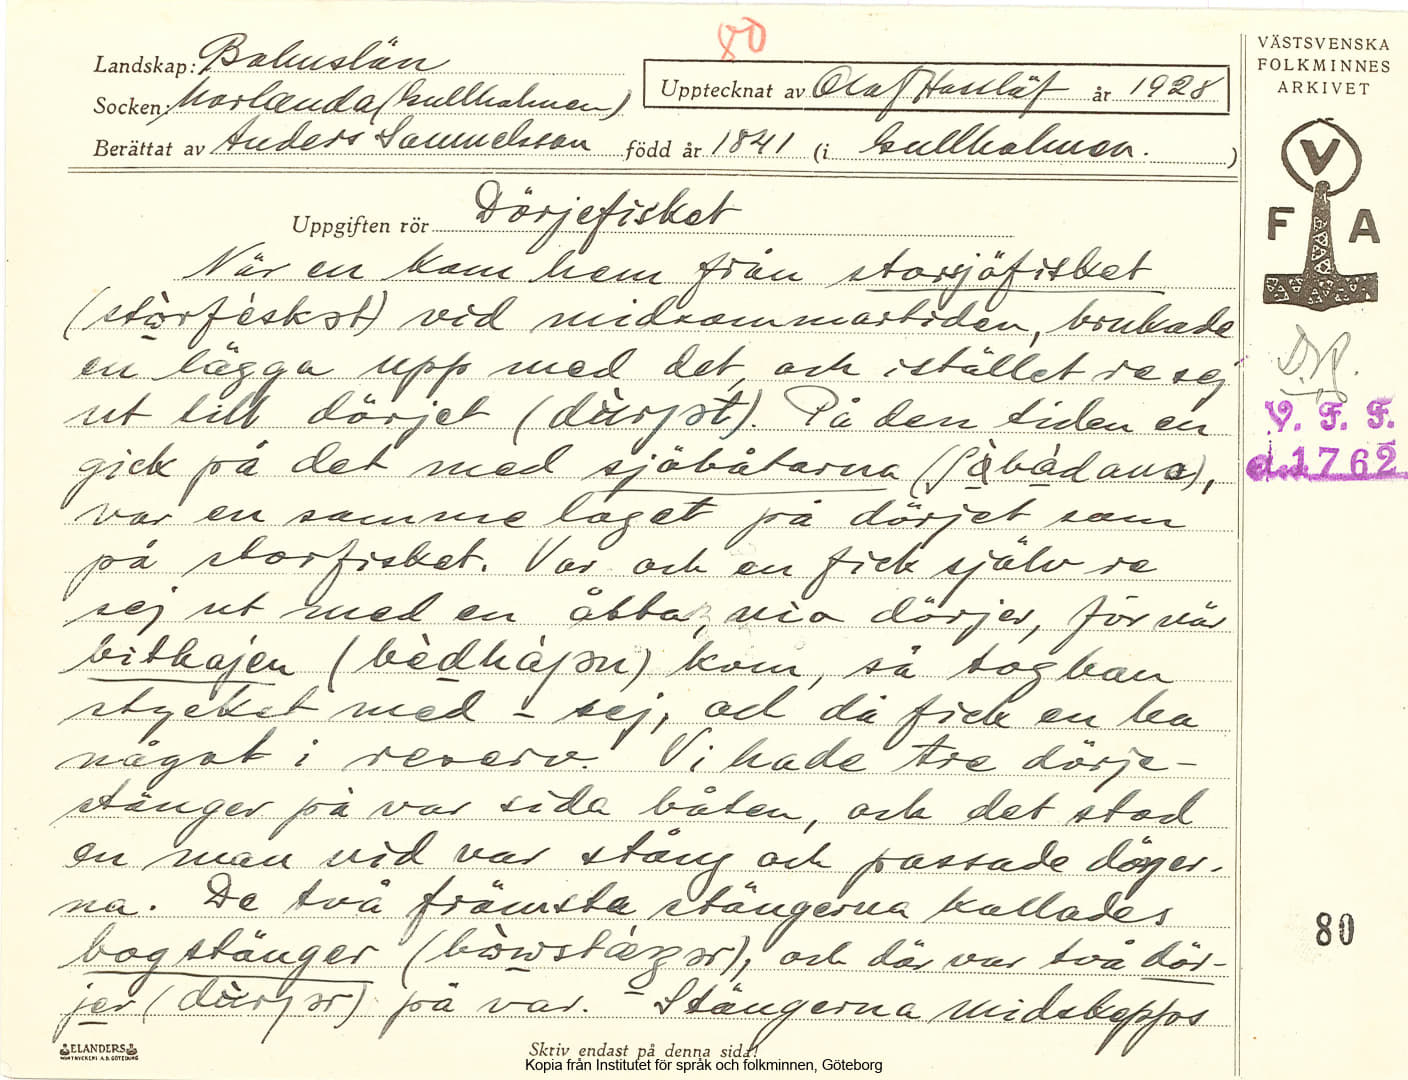 80
Landskap: Bohuslän
Socken: Morlanda (Gullholmen)
Upptecknat av Olof Hasslöf år 1928
Berättat av Anders Samuelsson född år 1841 (i Gullholmen. )
VÄSTSVENSKA
FOLKMINNES
ARKIVET
V
F A
V. F. F.
1762
80
Uppgiften rör Dörjefisket
När en kom hem från storsjöfisket
(stòrféskət) vid midsommartiden, brukade
en lägga upp med det, och istället re sej
ut till dörjet (dùrjət). På den tiden en
gick på det med sjöbåtarna
var en samme laget på dörjet som
på storfisket. Var och en fick själv re
sej ut med en åtta, nio dörjer, för när
bithajen (bèdhàjən) kom, så tog han
stycket med sej, och då fick en ha
något i reserv. Vi hade tre dörje-
stänger på var sida båten, och det stod
en man vid var stång och passade dörjer-
na. De två främsta stängerna kallades
bogstänger och där var två dör-
jer (dùrjər) på var. Stängerna midskepps
ELANDERS
Skriv endast på denna sida!
Kopia från Institutet för språk och folkminnen, Göteborg